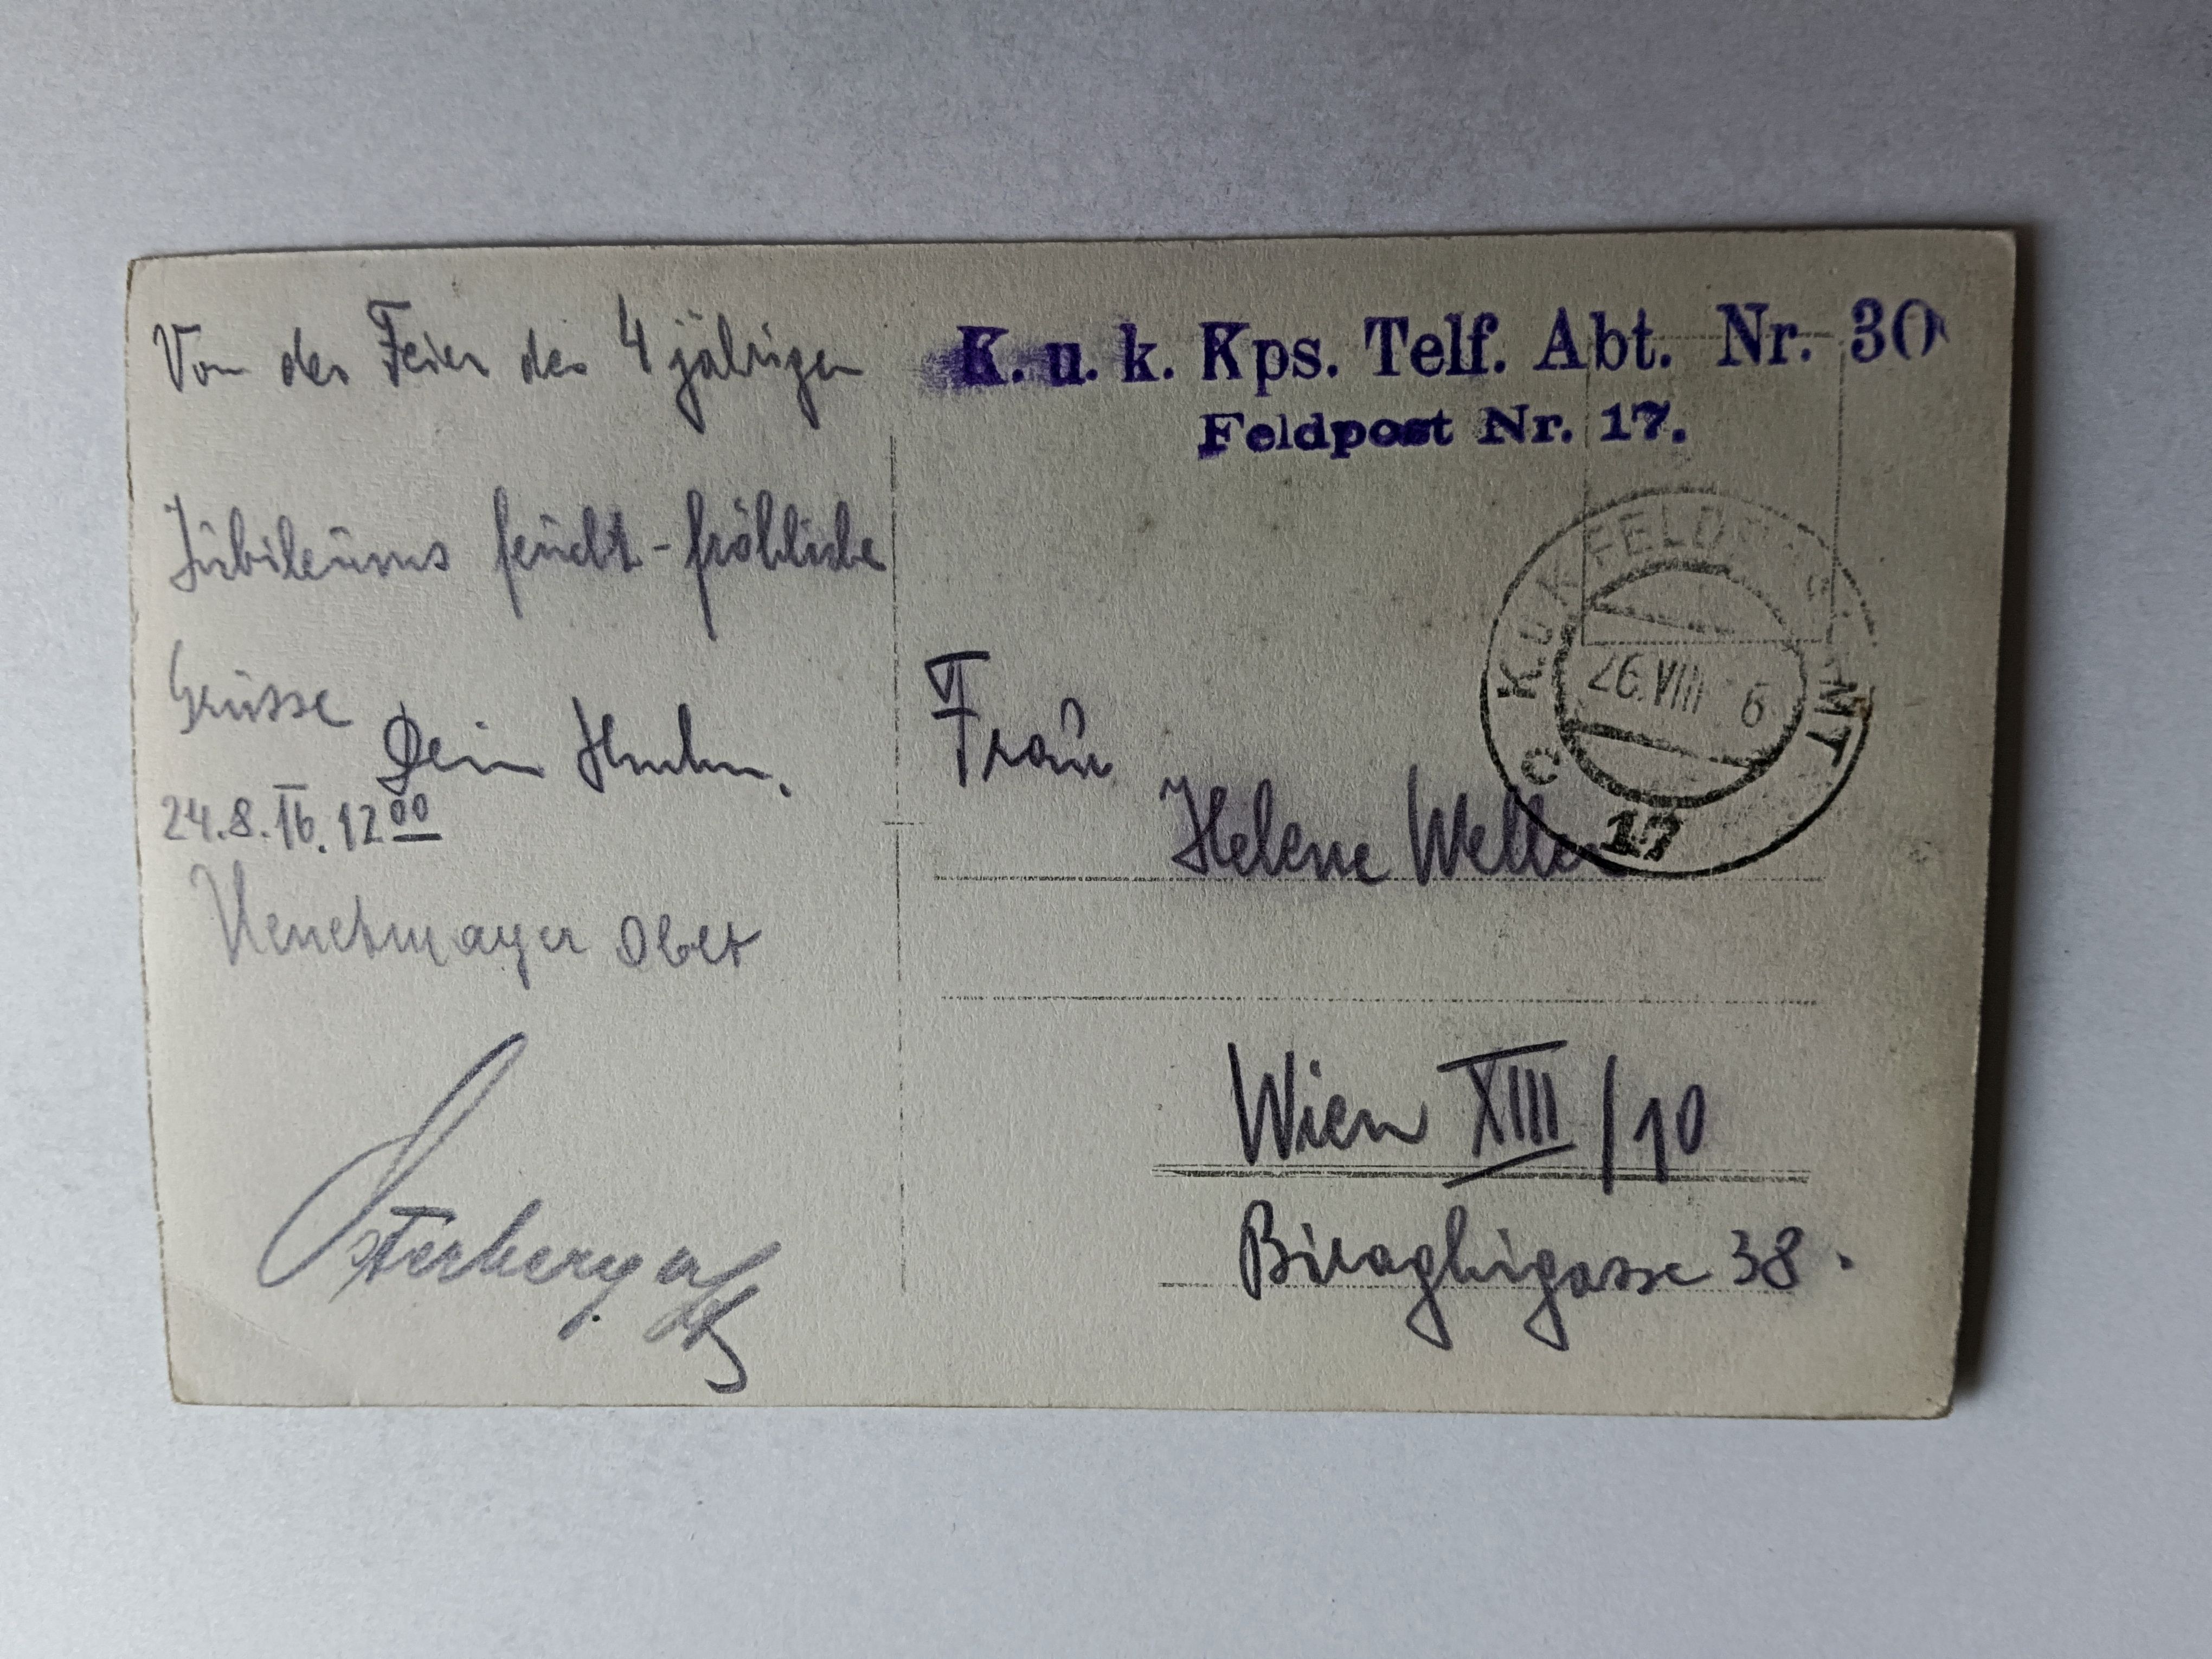 Von der Feier des 4 jährigen
Jubileums feucht-fröhliche
Grüsse
Dein
24.8.16. 12⁰⁰
Oblt
Osterberger
K. u. k. Kps. Telf. Abt. Nr. 30
Feldpost Nr. 17.
K.U.K. FELDPOSTAMT
26.VIII 6
c 17
Frau
Helene Weller
Wien XIII/10
Biraghigasse 38.